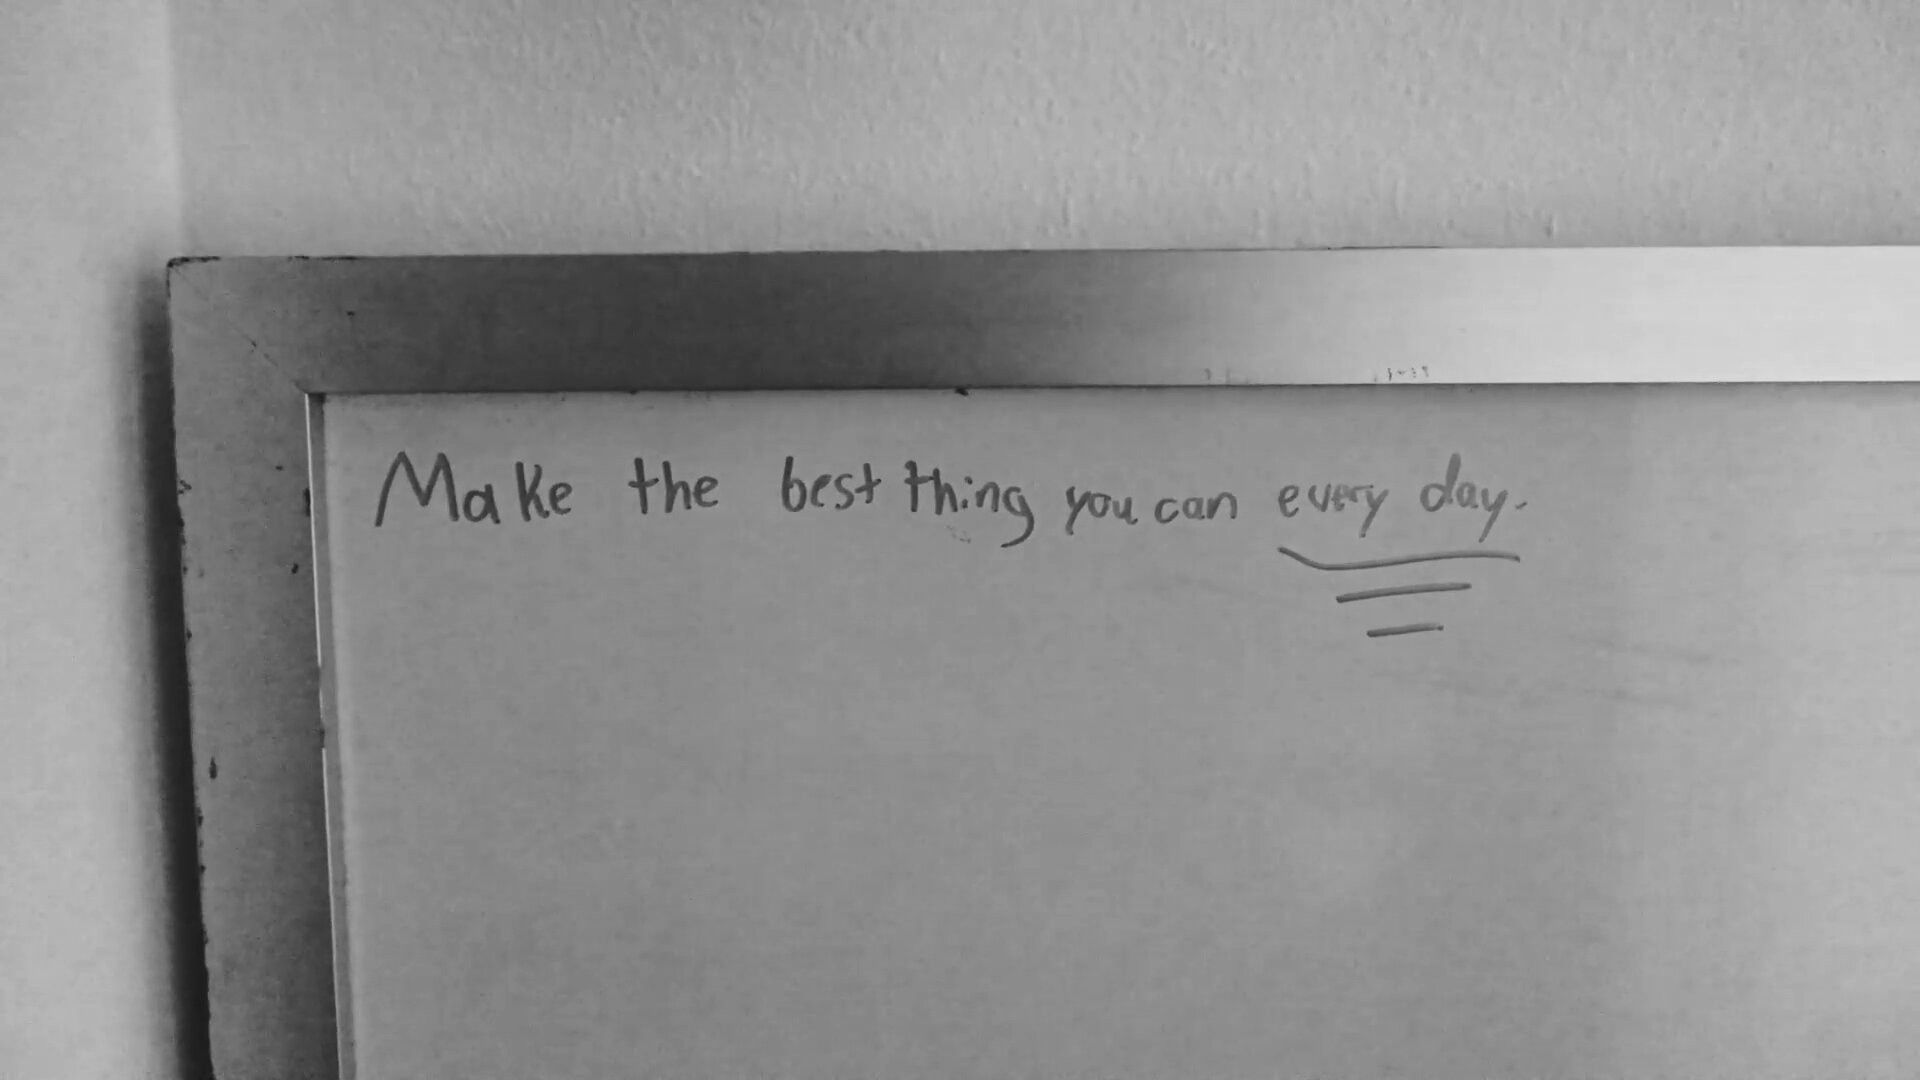 Make the best thing you can every day.